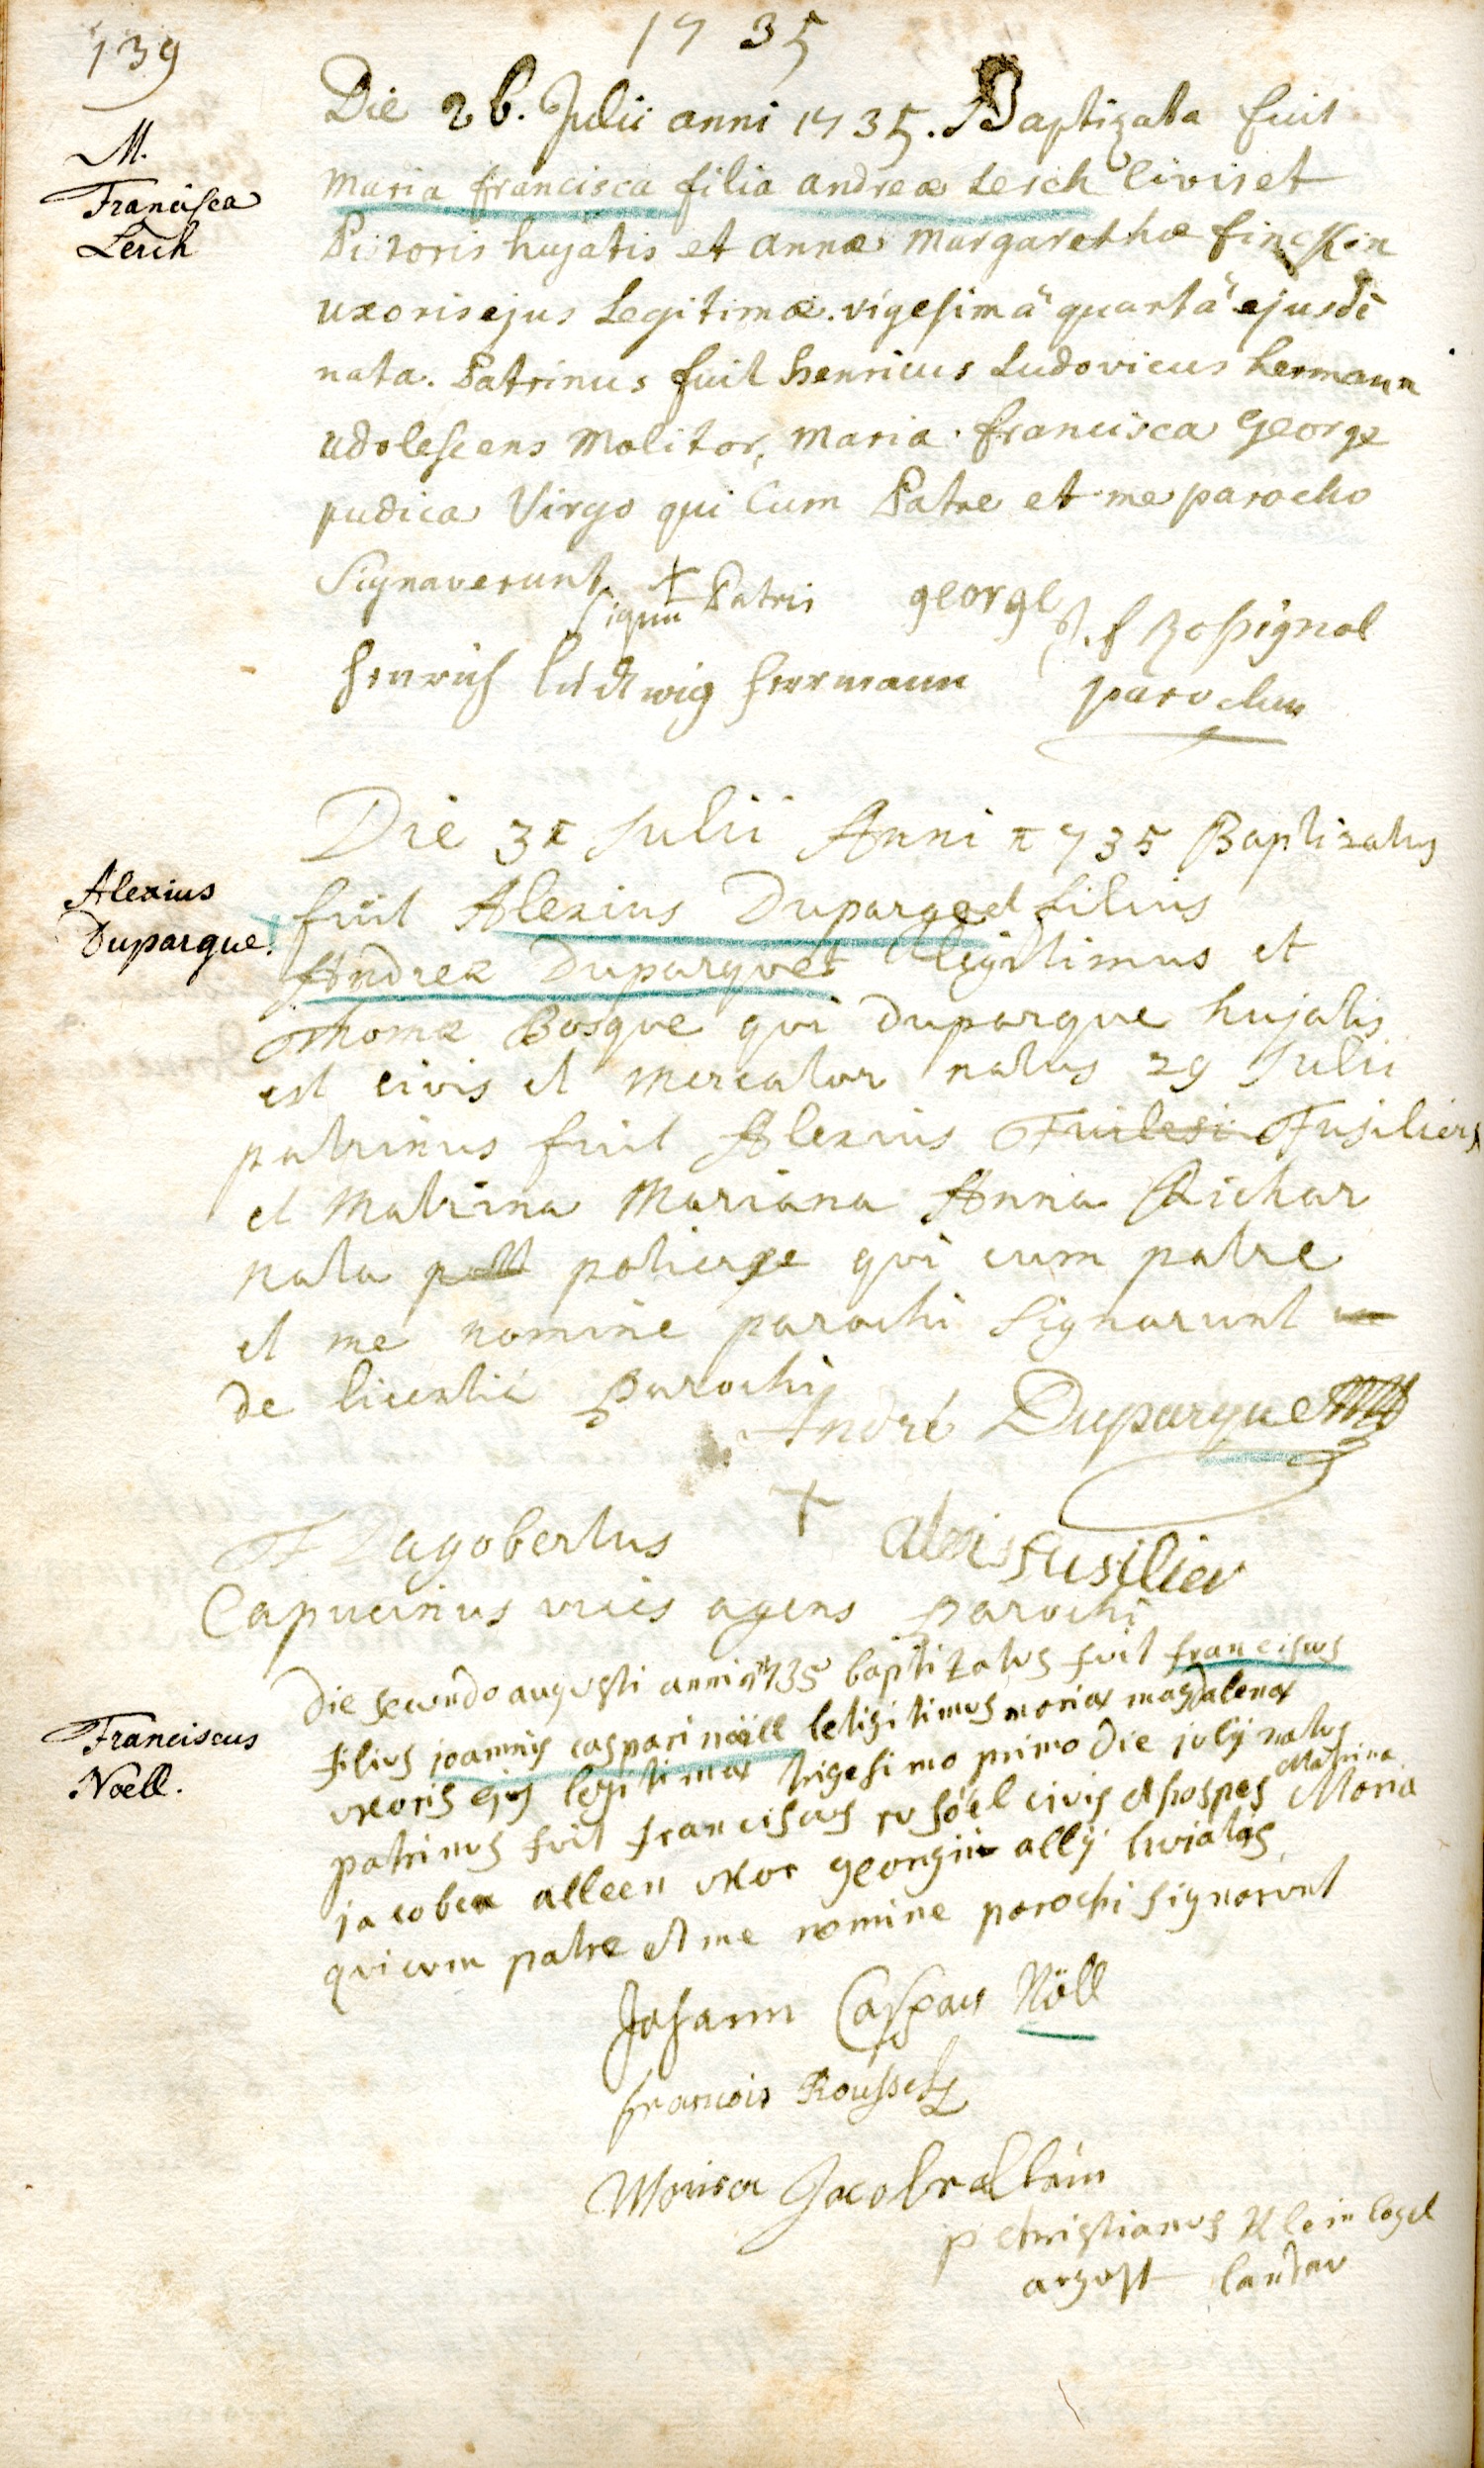 139
1735
M.
Francisca
Lerch
Die 26. Julii anni 1735. Baptizata fuit
maria francisca filia andreæ Lerch Civis et
Pistoris hujatis et annæ Margarethæ finckin
uxoris ejus Legitimæ. vigesimâ quartâ ejusdē
nata. Patrinus fuit henricus Ludovicus hermann
adolescens Molitor, maria francisca George
pudica Virgo qui Cum Patre et me parocho
Signaverunt
Signū + Patris george J. f Rossignol
Henrich Ludwig Herrmann parochus
Alexius
Duparque.
Die 31 Julii Anni 1735 Baptizatus
fuit Alexius Duparqed filius
Andreæ Duparquet legitimus et
Thomæ Bosque qui duparque hujatis
est civis et mercator natus 29 Julii
patrinus fuit Alexius Fuilesi Fusiliers
et Matrina Mariana Anna Richar
nata poticrge qui cum patre
et me nomine parochi Signarunt
de licentiâ Parochi
André Duparque
F Dagobertus + alexis fusilier
Capucinus vices agens parochi
Franciscus
Noëll.
Die secundo augusti anni 1735 baptizatus fuit franciscus
filius joannis caspari nöell letigitimus mariæ magdalenæ
uxoris ejus legitimæ trigesimo primo die julij natus
patrinus fuit franciscus rusöel civis et hospes Matrina Maria
jacobea alleen uxor georgii allij huiatis
qui cum patre et me nomine parochi signarunt
Johann Caspar Nöll
francois Roussel
Maria Jacobe altein
p christianus Kleinlogel
august landau